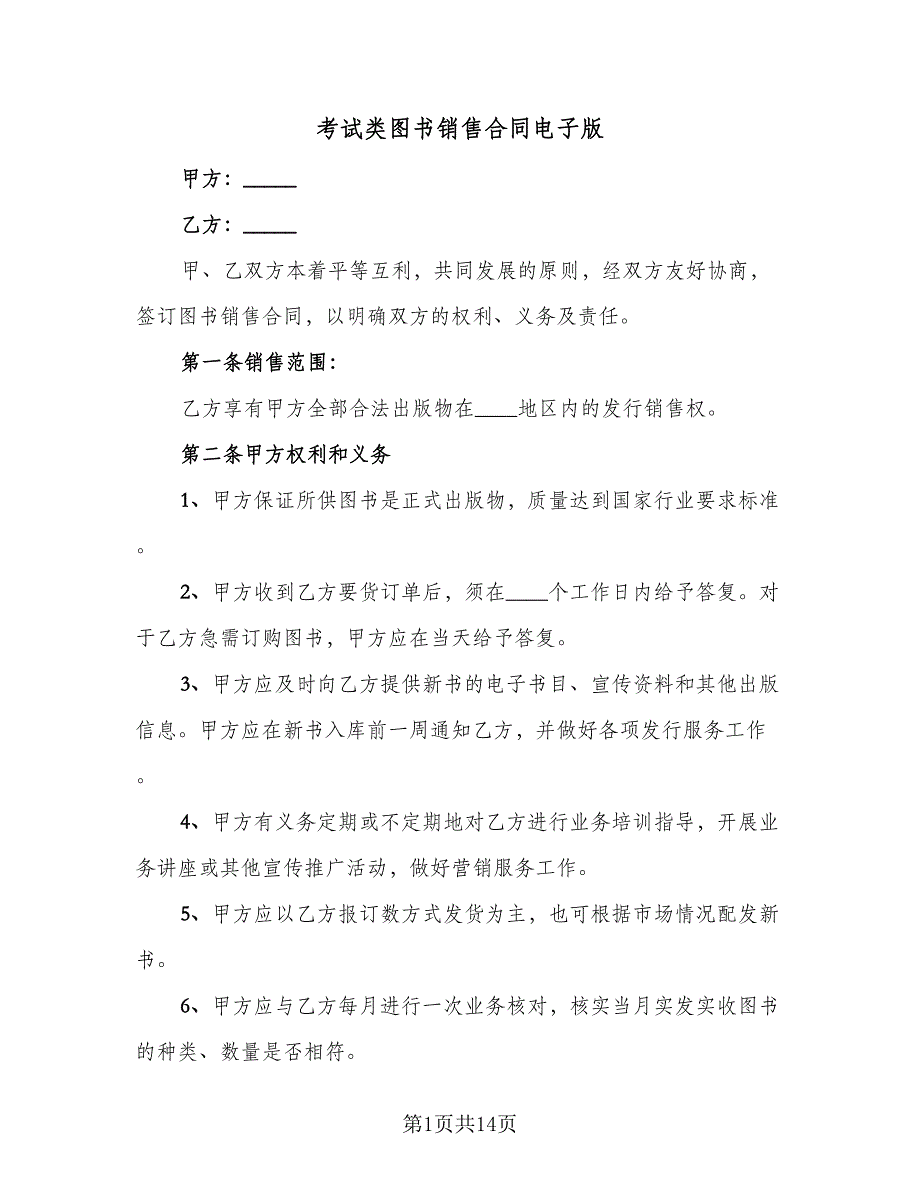 考试类图书销售合同电子版
甲方：_____
乙方：_____
甲、乙双方本着平等互利，共同发展的原则，经双方友好协商，
签订图书销售合同，以明确双方的权利、义务及责任。
第一条销售范围：
乙方享有甲方全部合法出版物在____地区内的发行销售权。
第二条甲方权利和义务
1、甲方保证所供图书是正式出版物，质量达到国家行业要求标准
。
2、甲方收到乙方要货订单后，须在____个工作日内给予答复。对
于乙方急需订购图书，甲方应在当天给予答复。
3、甲方应及时向乙方提供新书的电子书目、宣传资料和其他出版
信息。甲方应在新书入库前一周通知乙方，并做好各项发行服务工作
。
4、甲方有义务定期或不定期地对乙方进行业务培训指导，开展业
务讲座或其他宣传推广活动，做好营销服务工作。
5、甲方应以乙方报订数方式发货为主，也可根据市场情况配发新
书。
6、甲方应与乙方每月进行一次业务核对，核实当月实发实收图书
的种类、数量是否相符。
第1页共14页